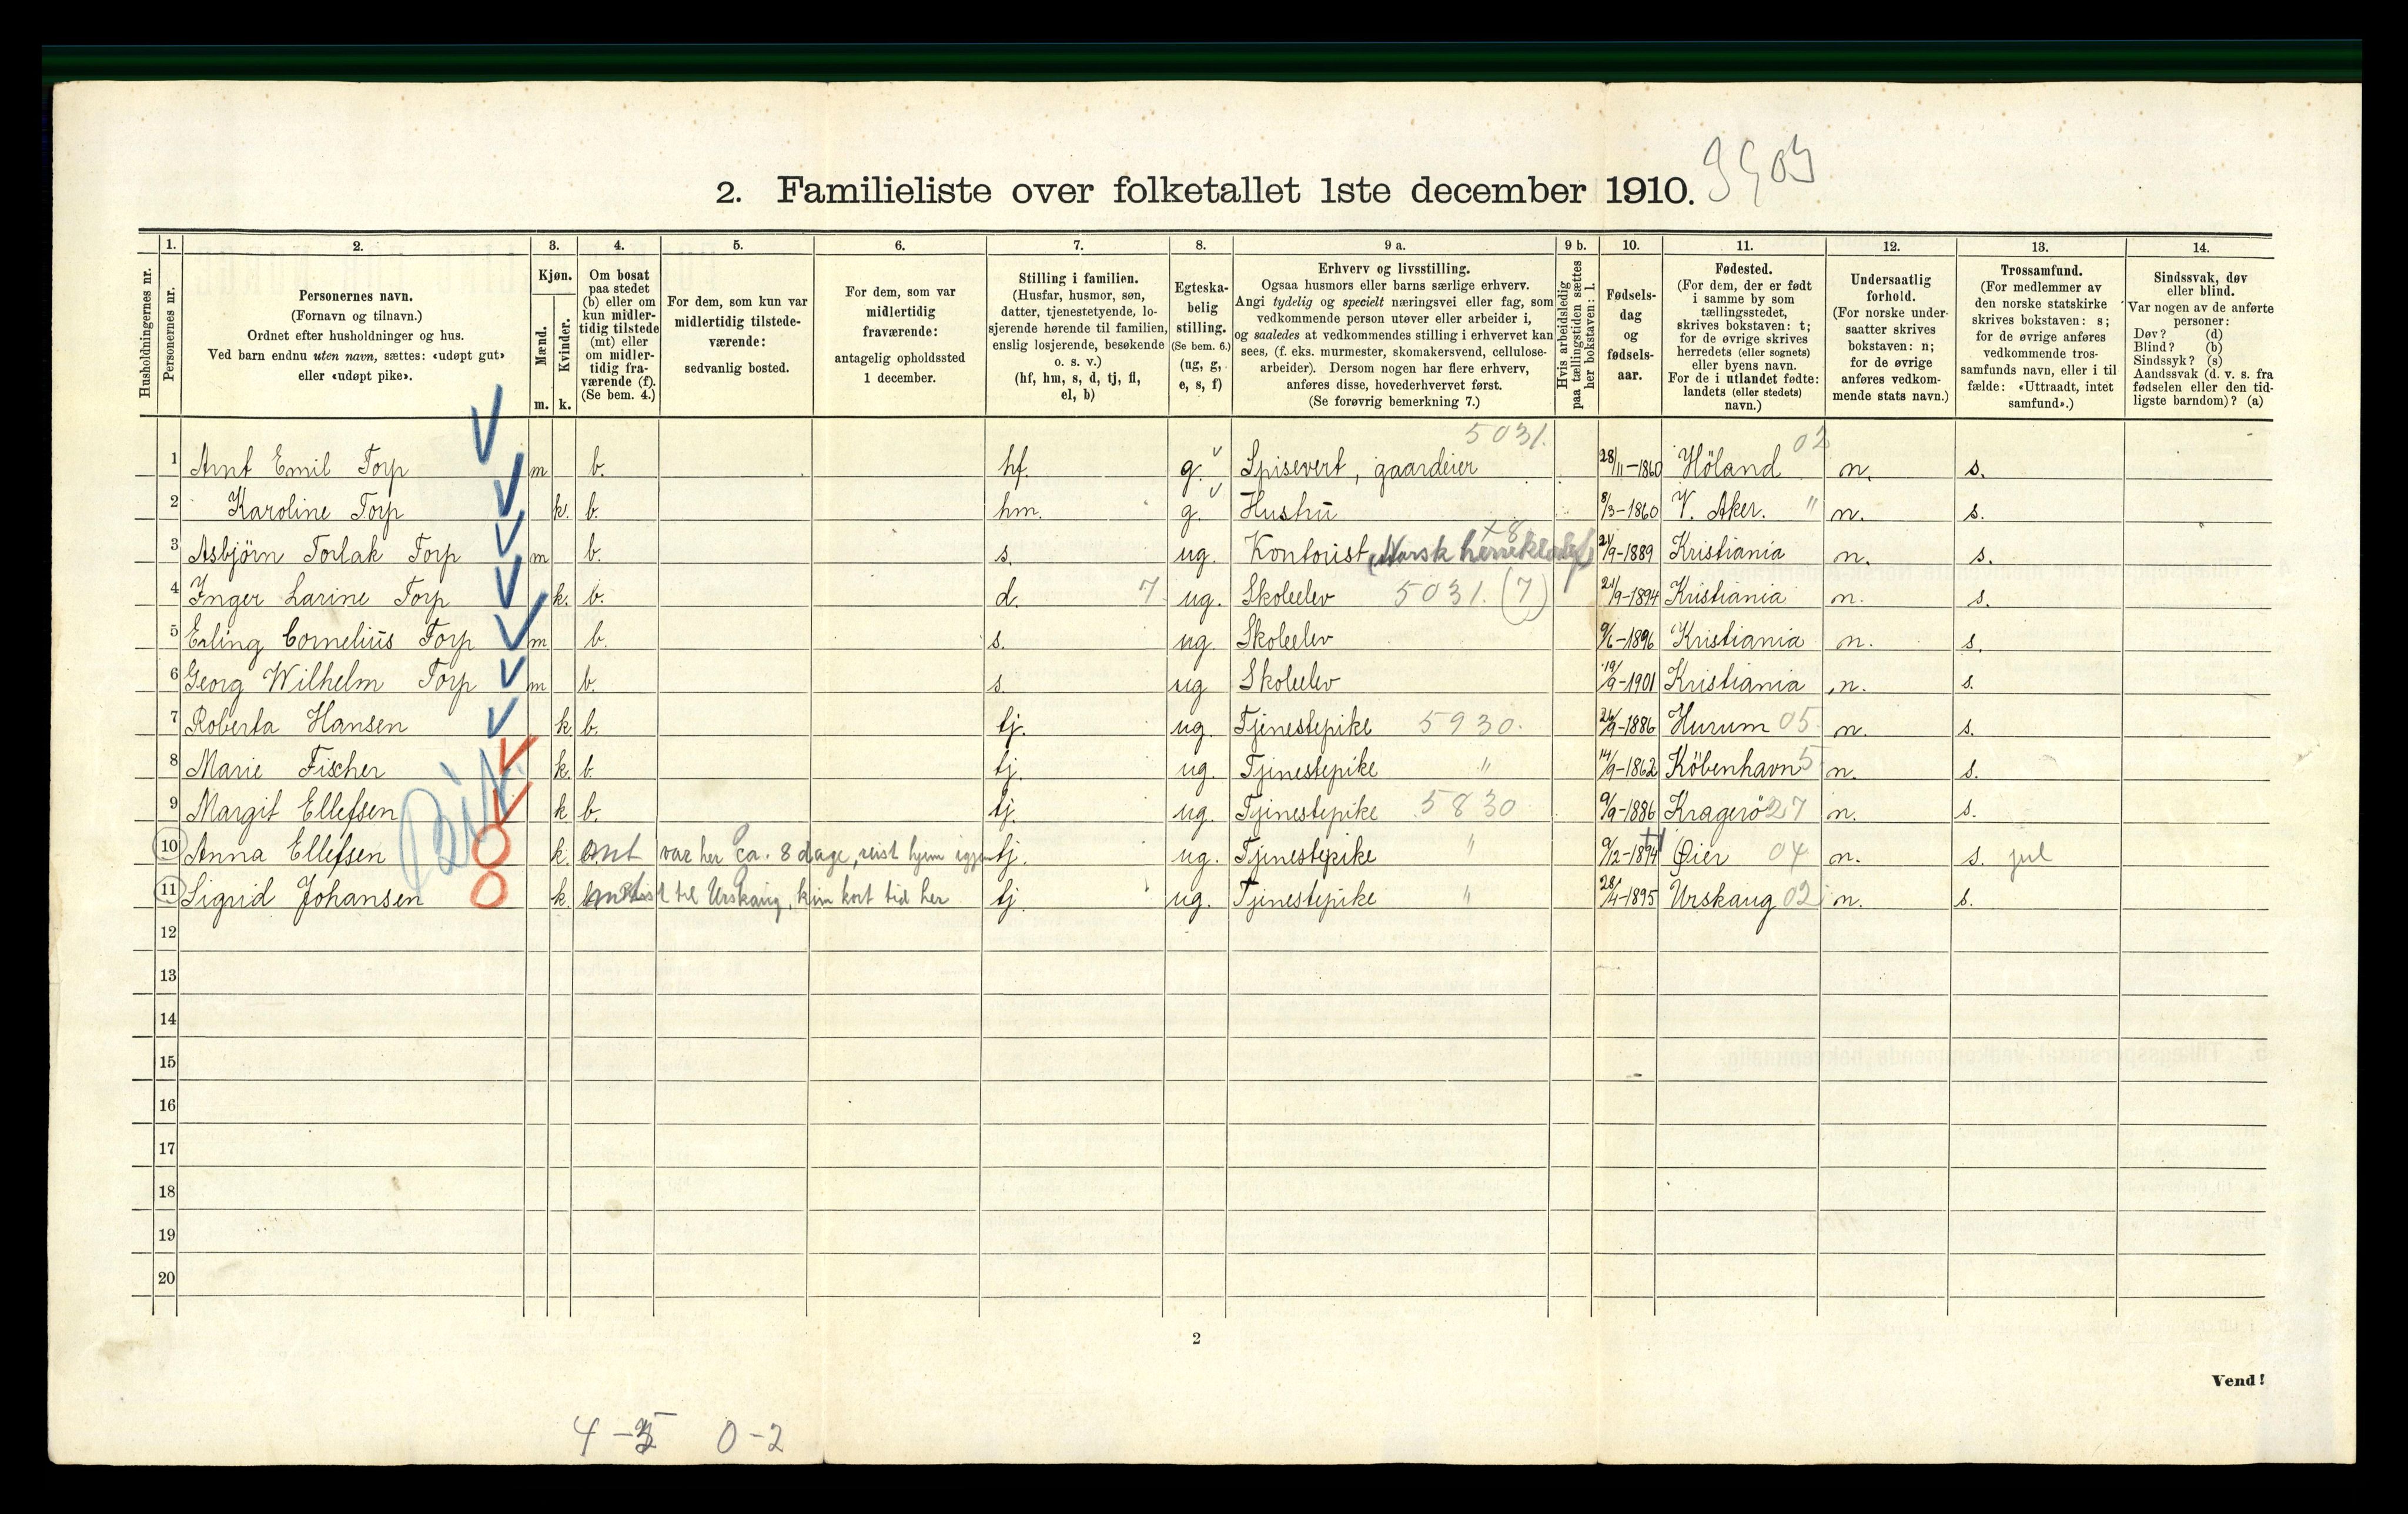 2. Familieliste over folketallet 1ste december 1910.
Husholdningernes nr.
1. Personernes nr.
2. Personernes navn.
(Fornavn og tilnavn.)
Ordnet efter husholdninger og hus.
Ved barn endnu uten navn, sættes: «udøpt gut»
eller «udøpt pike».
3. Kjøn.
Mænd. m.
Kvinder. k.
4. Om bosat
paa stedet
(b) eller om
kun midler-
tidig tilstede
(mt) eller
om midler-
tidig fra-
værende (f).
(Se bem. 4.)
5. For dem, som kun var
midlertidig tilstede-
værende:
sedvanlig bosted.
6. For dem, som var
midlertidig
fraværende:
antagelig opholdssted
1 december.
7. Stilling i familien.
(Husfar, husmor, søn,
datter, tjenestetyende, lo-
sjerende hørende til familien,
enslig losjerende, besøkende
o. s. v.)
(hf, hm, s, d, tj, fl,
el, b)
8. Egteska-
belig
stilling.
(Se bem. 6.)
(ug, g,
e, s, f)
9 a. Erhverv og livsstilling.
Ogsaa husmors eller barns særlige erhverv.
Angi tydelig og specielt næringsvei eller fag, som
vedkommende person utøver eller arbeider i,
og saaledes at vedkommendes stilling i erhvervet kan
sees, (f. eks. murmester, skomakersvend, cellulose-
arbeider). Dersom nogen har flere erhverv,
anføres disse, hovederhvervet først.
(Se forøvrig bemerkning 7.)
9 b. Hvis arbeidsledig
paa tællingstiden sættes
her bokstaven: l.
10. Fødsels-
dag
og
fødsels-
aar.
11. Fødested.
(For dem, der er født
i samme by som
tællingsstedet,
skrives bokstaven: t;
for de øvrige skrives
herredets (eller sognets)
eller byens navn.
For de i utlandet fødte:
landets (eller stedets)
navn.)
12. Undersaatlig
forhold.
(For norske under-
saatter skrives
bokstaven: n;
for de øvrige
anføres vedkom-
mende stats navn.)
13. Trossamfund.
(For medlemmer av
den norske statskirke
skrives bokstaven: s;
for de øvrige anføres
vedkommende tros-
samfunds navn, eller i til
fælde: «Uttraadt, intet
samfund».)
14. Sindssvak, døv
eller blind.
Var nogen av de anførte
personer:
Døv? (d)
Blind? (b)
Sindssyk? (s)
Aandssvak (d. v. s. fra
fødselen eller den tid-
ligste barndom)? (a)
5031. 02
1 Arnt Emil Torp m b. hf. g. Spisevert, gaardeier 28/11-1860 Höland n. s.
2 Karoline Torp k. b. hm. g. Hustru 8/3-1860 V. Aker. " n. s.
3 Asbjörn Torlak Torp m b. s. ug. Kontorist (Norsk 9-1889 Kristiania n. s.
4 Inger Larine Torp k. b. d. 7 ug. Skoleelev 5031. (7) 21/9-1894 Kristiania n. s.
5 Erling Cornelius Torp m b. s. ug. Skoleelev 9/6-1896 Kristiania n. s.
6 Georg Wilhelm Torp m b. s. ug Skoleelev 19/9-1901 Kristiania n. s.
7 Roberta Hansen k b. tj. ug. Tjenestepike 5930. 26/9-1886 Hurum 05 n. s.
8 Marie Fischer k. b. tj. ug. Tjenestepike " 14/9-1862 Köbenhavn 5 n. s.
9 Margit Ellefsen k b. tj. ug. Tjenestepike 5830 9/9-1886 Kragerö 27 n. s.
10 Anna Ellefsen k. mt var her ca. 8 dage, reist hjem igjen tj. ug. Tjenestepike " 9/12-1894 Øier 04 n. s. jul
11 Sigrid Johansen k mt til Urskaug, kun kort tid her tj ug. Tjenestepike " 28/4-1895 Urskaug 02 n. s.
12
13
14
15
16
17
18
19
20
2
Vend!
4-5 0-2